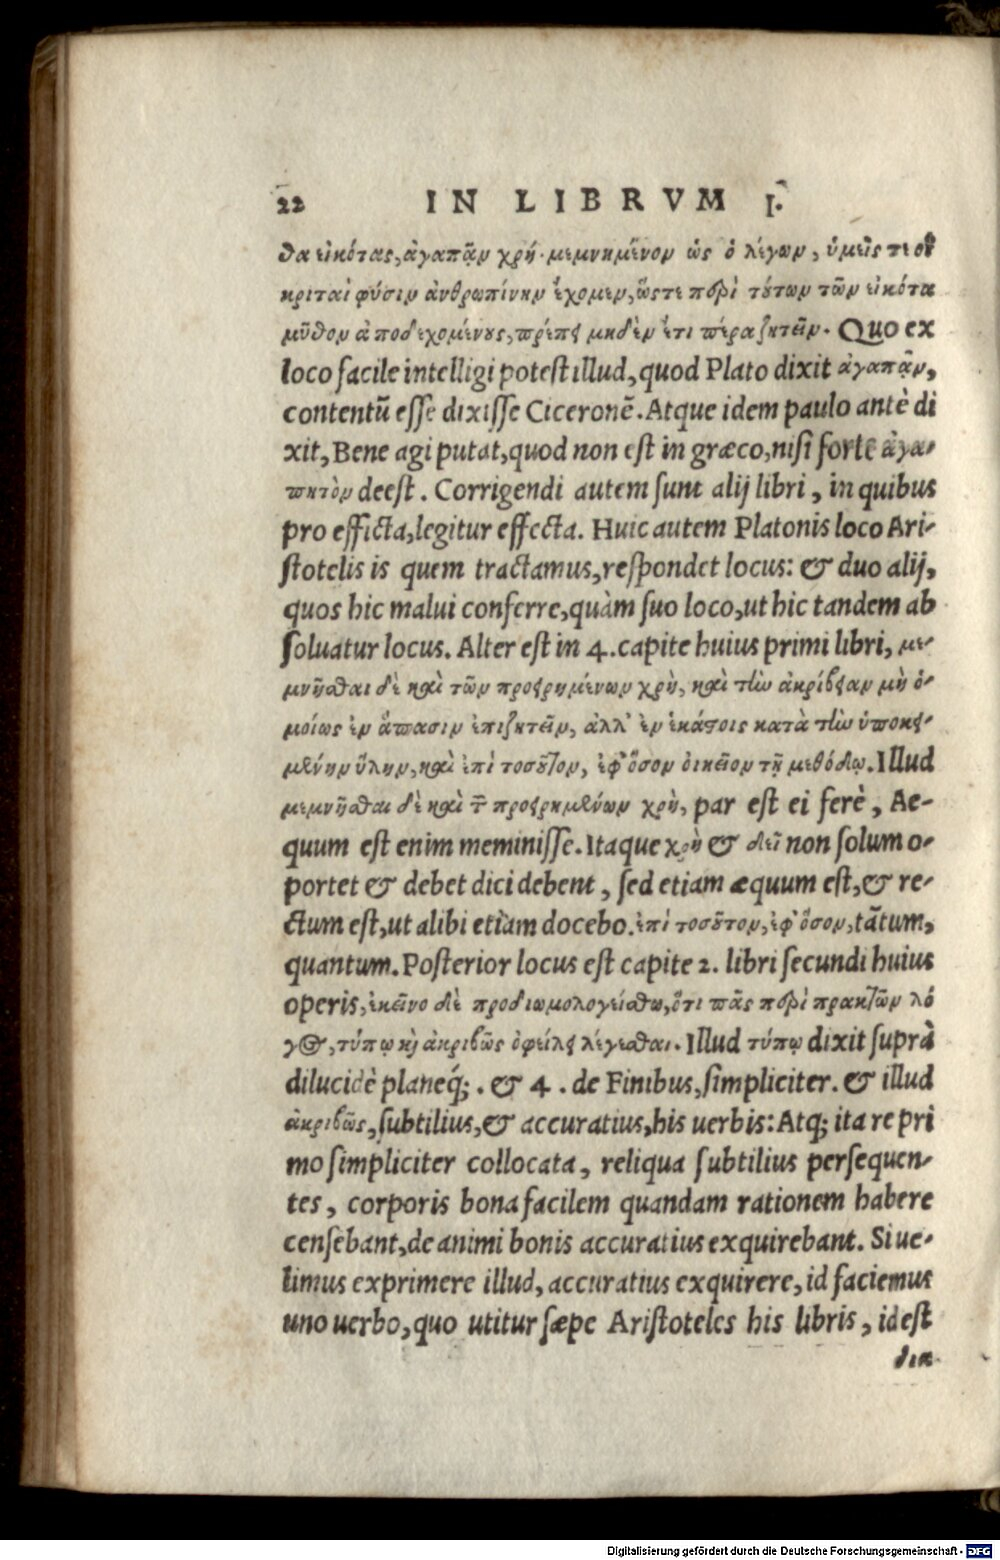 22 IN LIBRVM I.
θα εἰκότας, ἀγαπᾶν χρή. μεμνημένον ὡς ὁ λέγων, ὑμεῖς τε οἱ
κριταὶ φύσιν ἀνθρωπίνην ἔχομεν, ὥστε περὶ τούτων τῶν εἰκότα
μῦθον ἀποδεχομένους, πρέπει μηδὲν ἔτι πέρα ζητεῖν. Quo ex
loco facile intelligi potest illud, quod Plato dixit ἀγαπᾶν,
contentū esse dixisse Ciceronē. Atque idem paulo antè di
xit, Bene agi putat, quod non est in græco, nisi forte ἀγα-
πητὸν deest. Corrigendi autem sunt alij libri, in quibus
pro efficta, legitur effecta. Huic autem Platonis loco Ari-
stotelis is quem tractamus, respondet locus: & duo alij,
quos hic malui conferre, quàm suo loco, ut hic tandem ab
soluatur locus. Alter est in 4. capite huius primi libri, με-
μνῆσθαι δὲ καὶ τῶν προειρημένων χρὴ, καὶ τὴν ἀκρίβειαν μὴ ὁ-
μοίως ἐν ἅπασιν ἐπιζητεῖν, ἀλλ' ἐν ἑκάστοις κατὰ τὴν ὑποκει-
μένην ὕλην, καὶ ἐπὶ τοσοῦτον, ἐφ' ὅσον οἰκεῖον τῇ μεθόδῳ. Illud
μεμνῆσθαι δὲ καὶ τ̄ προειρημένων χρὴ, par est ei ferè, Ae-
quum est enim meminisse. Itaque χρὴ & δεῖ non solum o-
portet & debet dici debent, sed etiam æquum est, & re-
ctum est, ut alibi etiam docebo. ἐπὶ τοσοῦτον, ἐφ' ὅσον, tātum,
quantum. Posterior locus est capite 2. libri secundi huius
operis, ἐκεῖνο δὲ προδιωμολογείσθω, ὅτι πᾶς περὶ πρακτῶν λό
γος, τύπῳ κὶ ἀκριβῶς ὀφείλει λέγεσθαι. Illud τύπῳ dixit suprà
dilucidè planeq́;. & 4. de Finibus, simpliciter. & illud
ἀκριβῶς, subtilius, & accuratius, his uerbis: Atq; ita re pri
mo simpliciter collocata, reliqua subtilius persequen-
tes, corporis bona facilem quandam rationem habere
censebant, de animi bonis accuratius exquirebant. Si ue-
limus exprimere illud, accuratius exquirere, id faciemus
uno uerbo, quo utitur sæpe Aristoteles his libris, id est
δια-
Digitalisierung gefördert durch die Deutsche Forschungsgemeinschaft - DFG